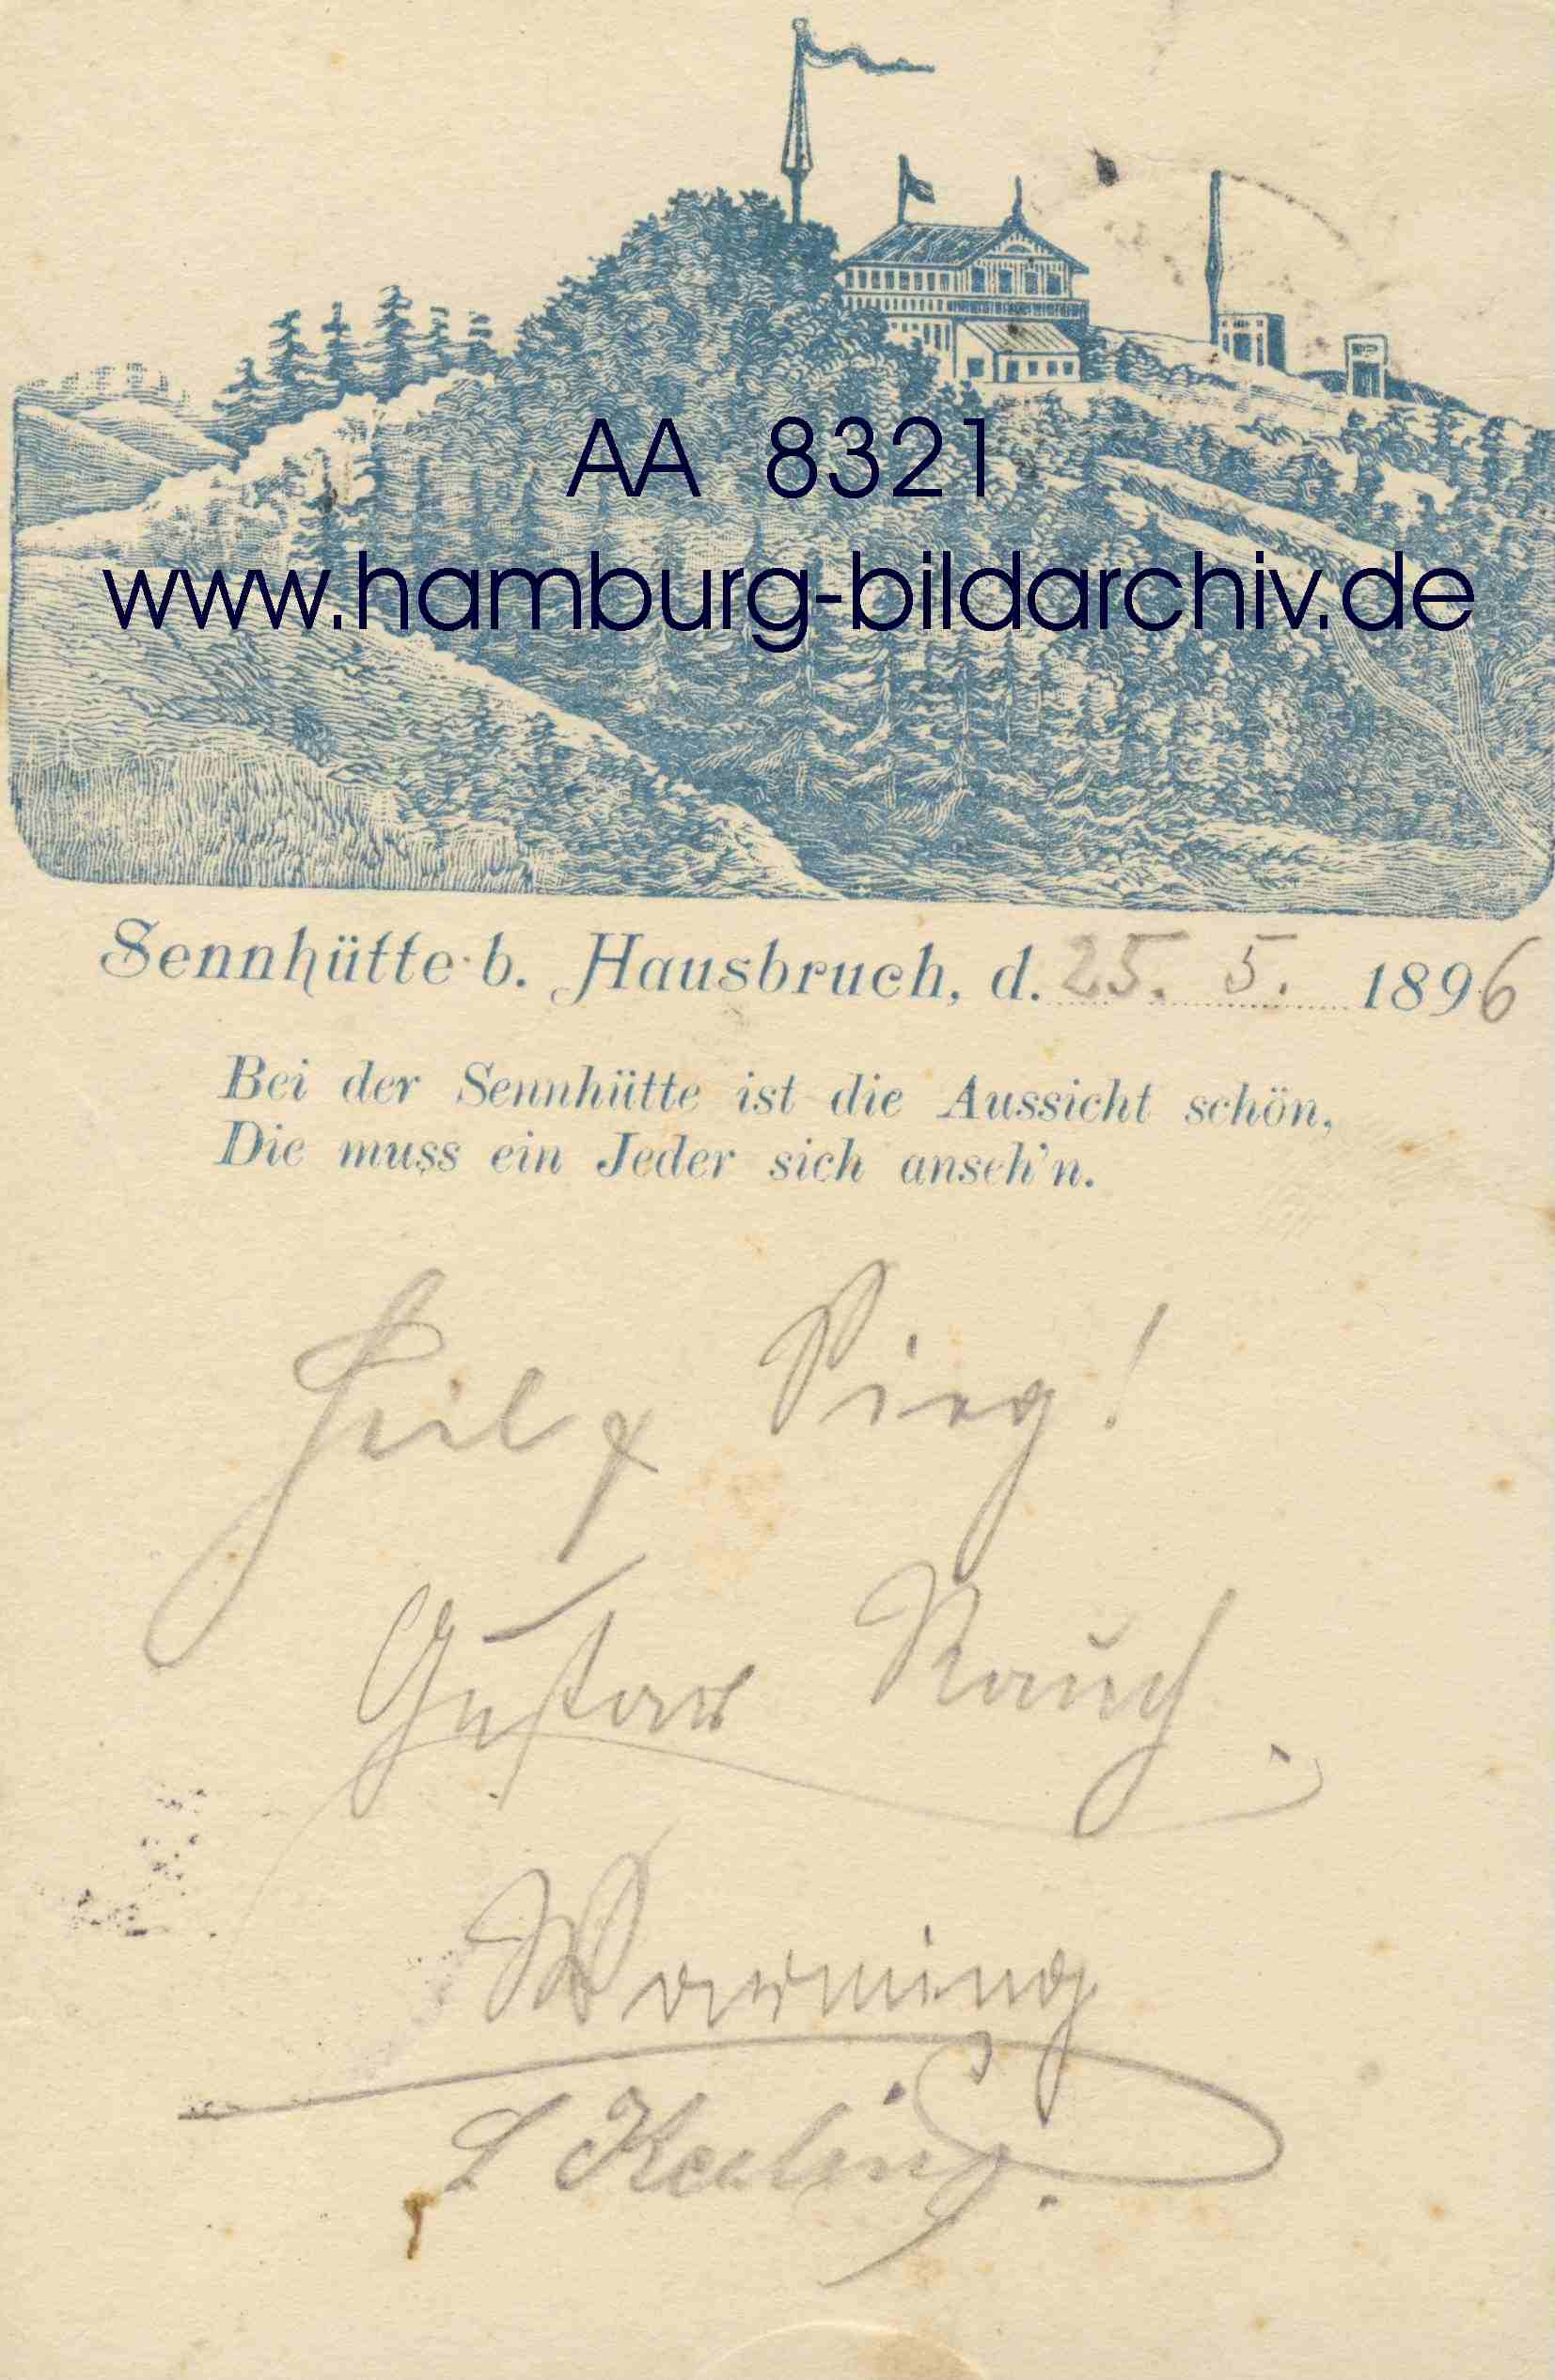 AA 8321
www.hamburg-bildarchiv.de
Sennhütte b. Hausbruch, d. 25. 5. 1896
Bei der Sennhütte ist die Aussicht schön,
Die muss ein Jeder sich anseh'n.
Heil & Sieg!
Gustav Rauch.